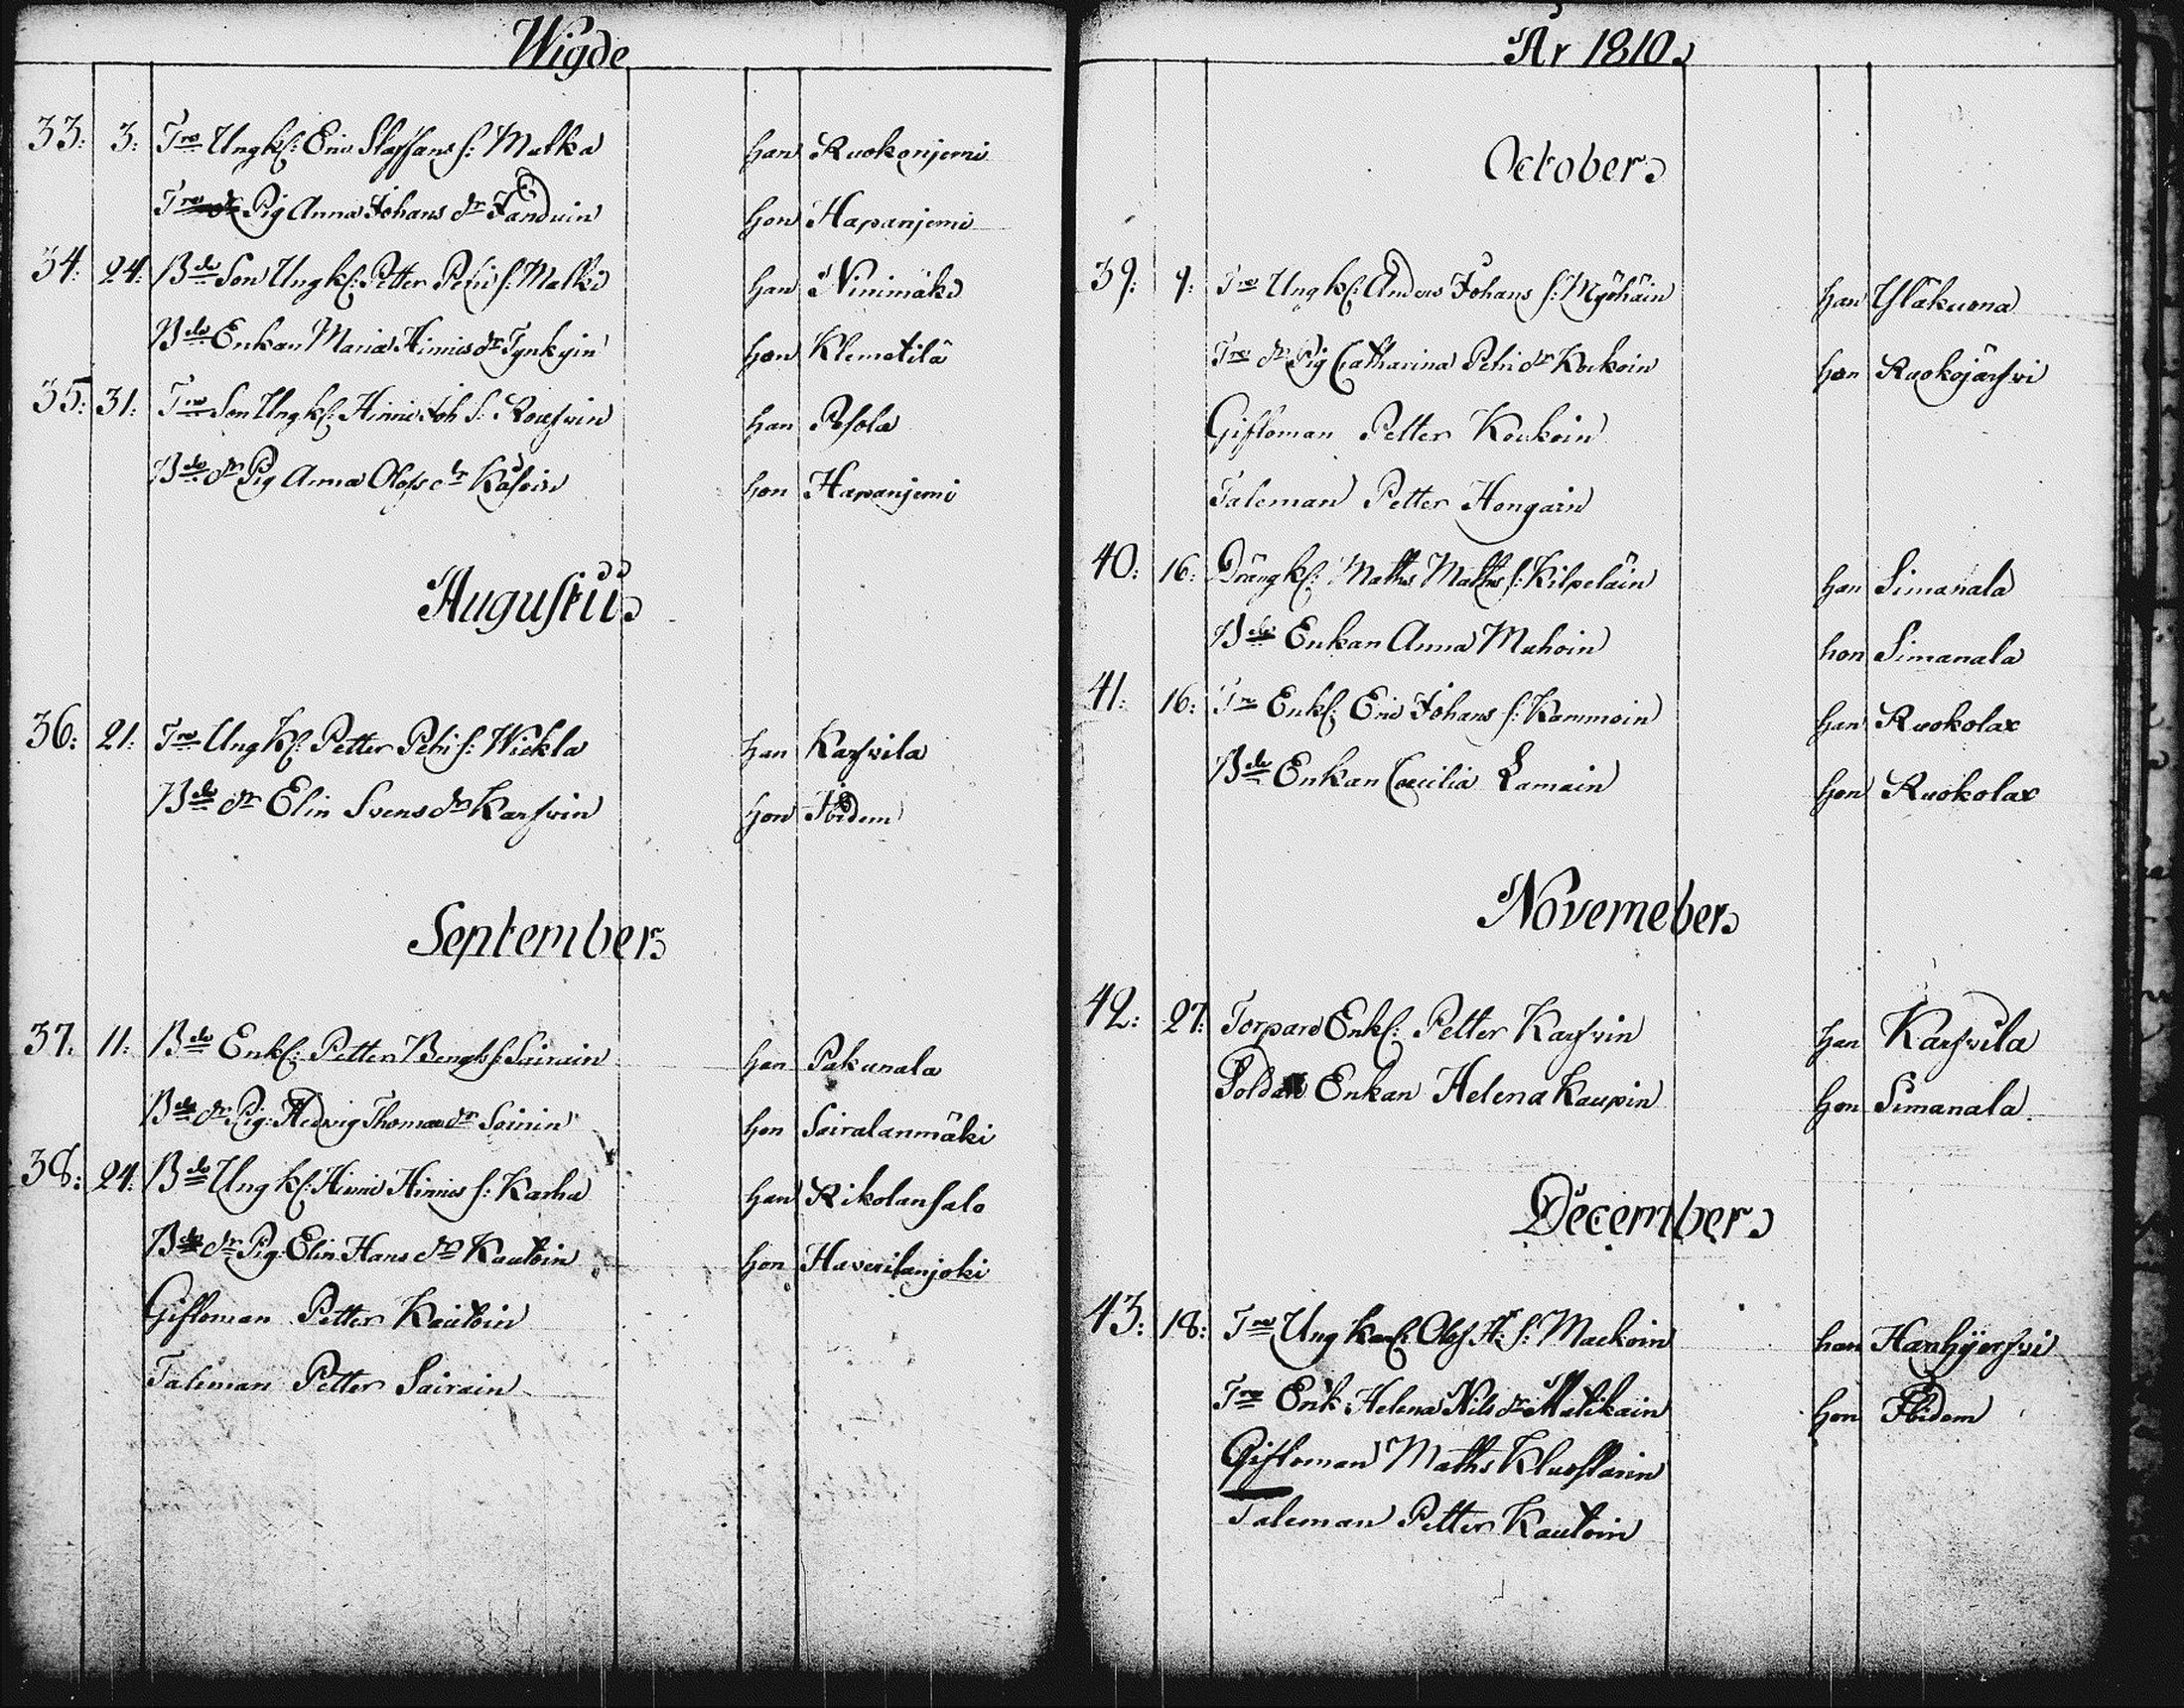 Wigde
33: 3: Tre Ungk: Eric Staffans s: Malka han Ruokonjemi
Tre Pig Anna Johans dr hon Hapanjemi
34: 24: Bde Son Ungk: Petter Petri s: Malki han Ninimäki
Bde Enkan Maria Hinrics dr Tynkyin hon Klemetilä
35: 31: Tre Son Ungk: Hinric Joh S: han Pesola
Bde dr Pig Anna Olofs dr hon Hapanjemi
Augustii
36: 21: Tre Ungk: Petter Petri s: Wickla han Karsvila
Bde dr Elin Svens dr Karsvin hon Ibidem
September
37: 11: Bde Enkl: Petter Bengts s: Sairain han Pakunala
Bde dr Pig: Hedvig Thomas dr Soinin hon Sairalanmäki
38: 24: Bde Ungk: Hinric Hinrics s: Karha han Rikolansalo
Bde dr Pig: Elin Hans dr Kautoin hon Haverilanjoki
Giftoman Petter Kautoin
Taleman Petter Sairain
År 1810
October
39: 9: Tre Ungk: Anders Johans s: Myöhäin han Yläkuona
Tre dr Pig Catharina Petri dr Koukoin hon Ruokojärfvi
Giftoman Petter Koukoin
Taleman Petter Hongain
40: 16: Drängk: Maths Maths s: Kilpeläin han Simanala
Bde Enkan Anna Muhoin hon Simanala
41: 16: Tre Enkl: Eric Johans s: Kommoin han Ruokolax
Bde Enkan Cæcilia Lamain hon Ruokolax
Novemeber
42: 27: Torpare Enkl: Petter Karsvin han Karsvila
Soldat Enkan Helena Kaupin hon Simanala
December
43: 18: Tre Ung Karl: Olof H: s: Mackoin han Hanhijerfvi
Tre Enk Helena Nils dr Matikain hon Ibidem
Giftoman Maths
Taleman Petter Kautoin